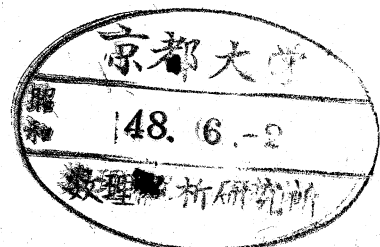 京都大学
昭和
48. 6. -2
数理解析研究所